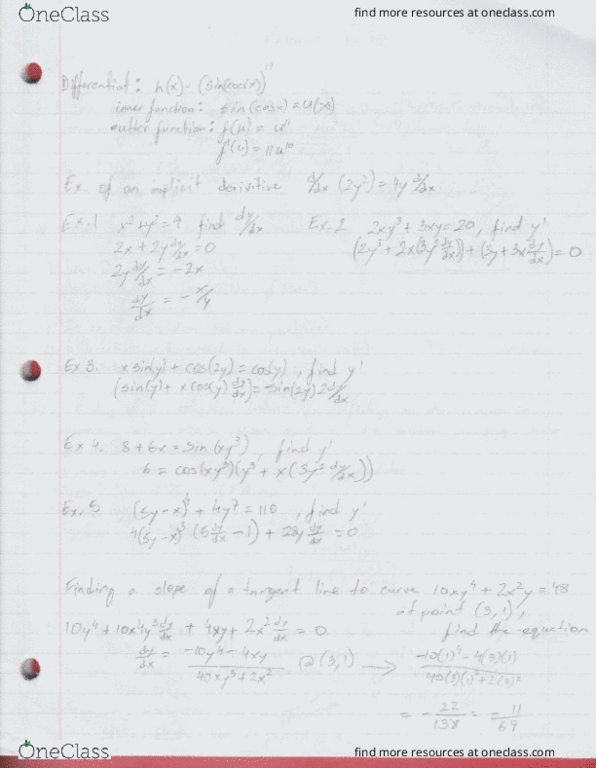 OneClass
find more resources at oneclass.com
Differentiat: h(x) = (sin(cos(x))^11
inner function: sin(cosx) = u(x)
outter function: f(u) = u^11
f'(u) = 11u^10
Ex. of an implicit derivitive d/dx (2y²) = 4y dy/dx
Ex.1 x²+y² = 9 find dy/dx
2x + 2y dy/dx = 0
2y dy/dx = -2x
dy/dx = -x/y
Ex. 2 2xy³ + 3xy = 20, find y'
(2y³ + 2x(3y² dy/dx)) + (3y + 3x dy/dx) = 0
Ex 3. x sin(y) + cos(2y) = cos(y), find y'
(sin(y) + x cos(y) dy/dx) = sin(2y) 2 dy/dx
Ex 4. 8 + 6x = sin(xy³), find y'
6 = cos(xy³)(y³ + x(3y² dy/dx))
Ex. 5 (5y-x)^4 + 4y^7 = 110, find y'
4(5y-x)³ (5 dy/dx - 1) + 28y dy/dx = 0
Finding a slope of a tangent line to curve 10xy⁴ + 2x²y = 48
at point (3,1),
find the equation
10y⁴ + 10x4y³ dy/dx + 4xy + 2x² dy/dx = 0
dy/dx = -10y⁴ - 4xy / 40xy³ + 2x² @ (3,1) → -10(1)⁴ - 4(3)(1) / 40(3)(1)³ + 2(3)²
= -22/138 = -11/69
OneClass
find more resources at oneclass.com